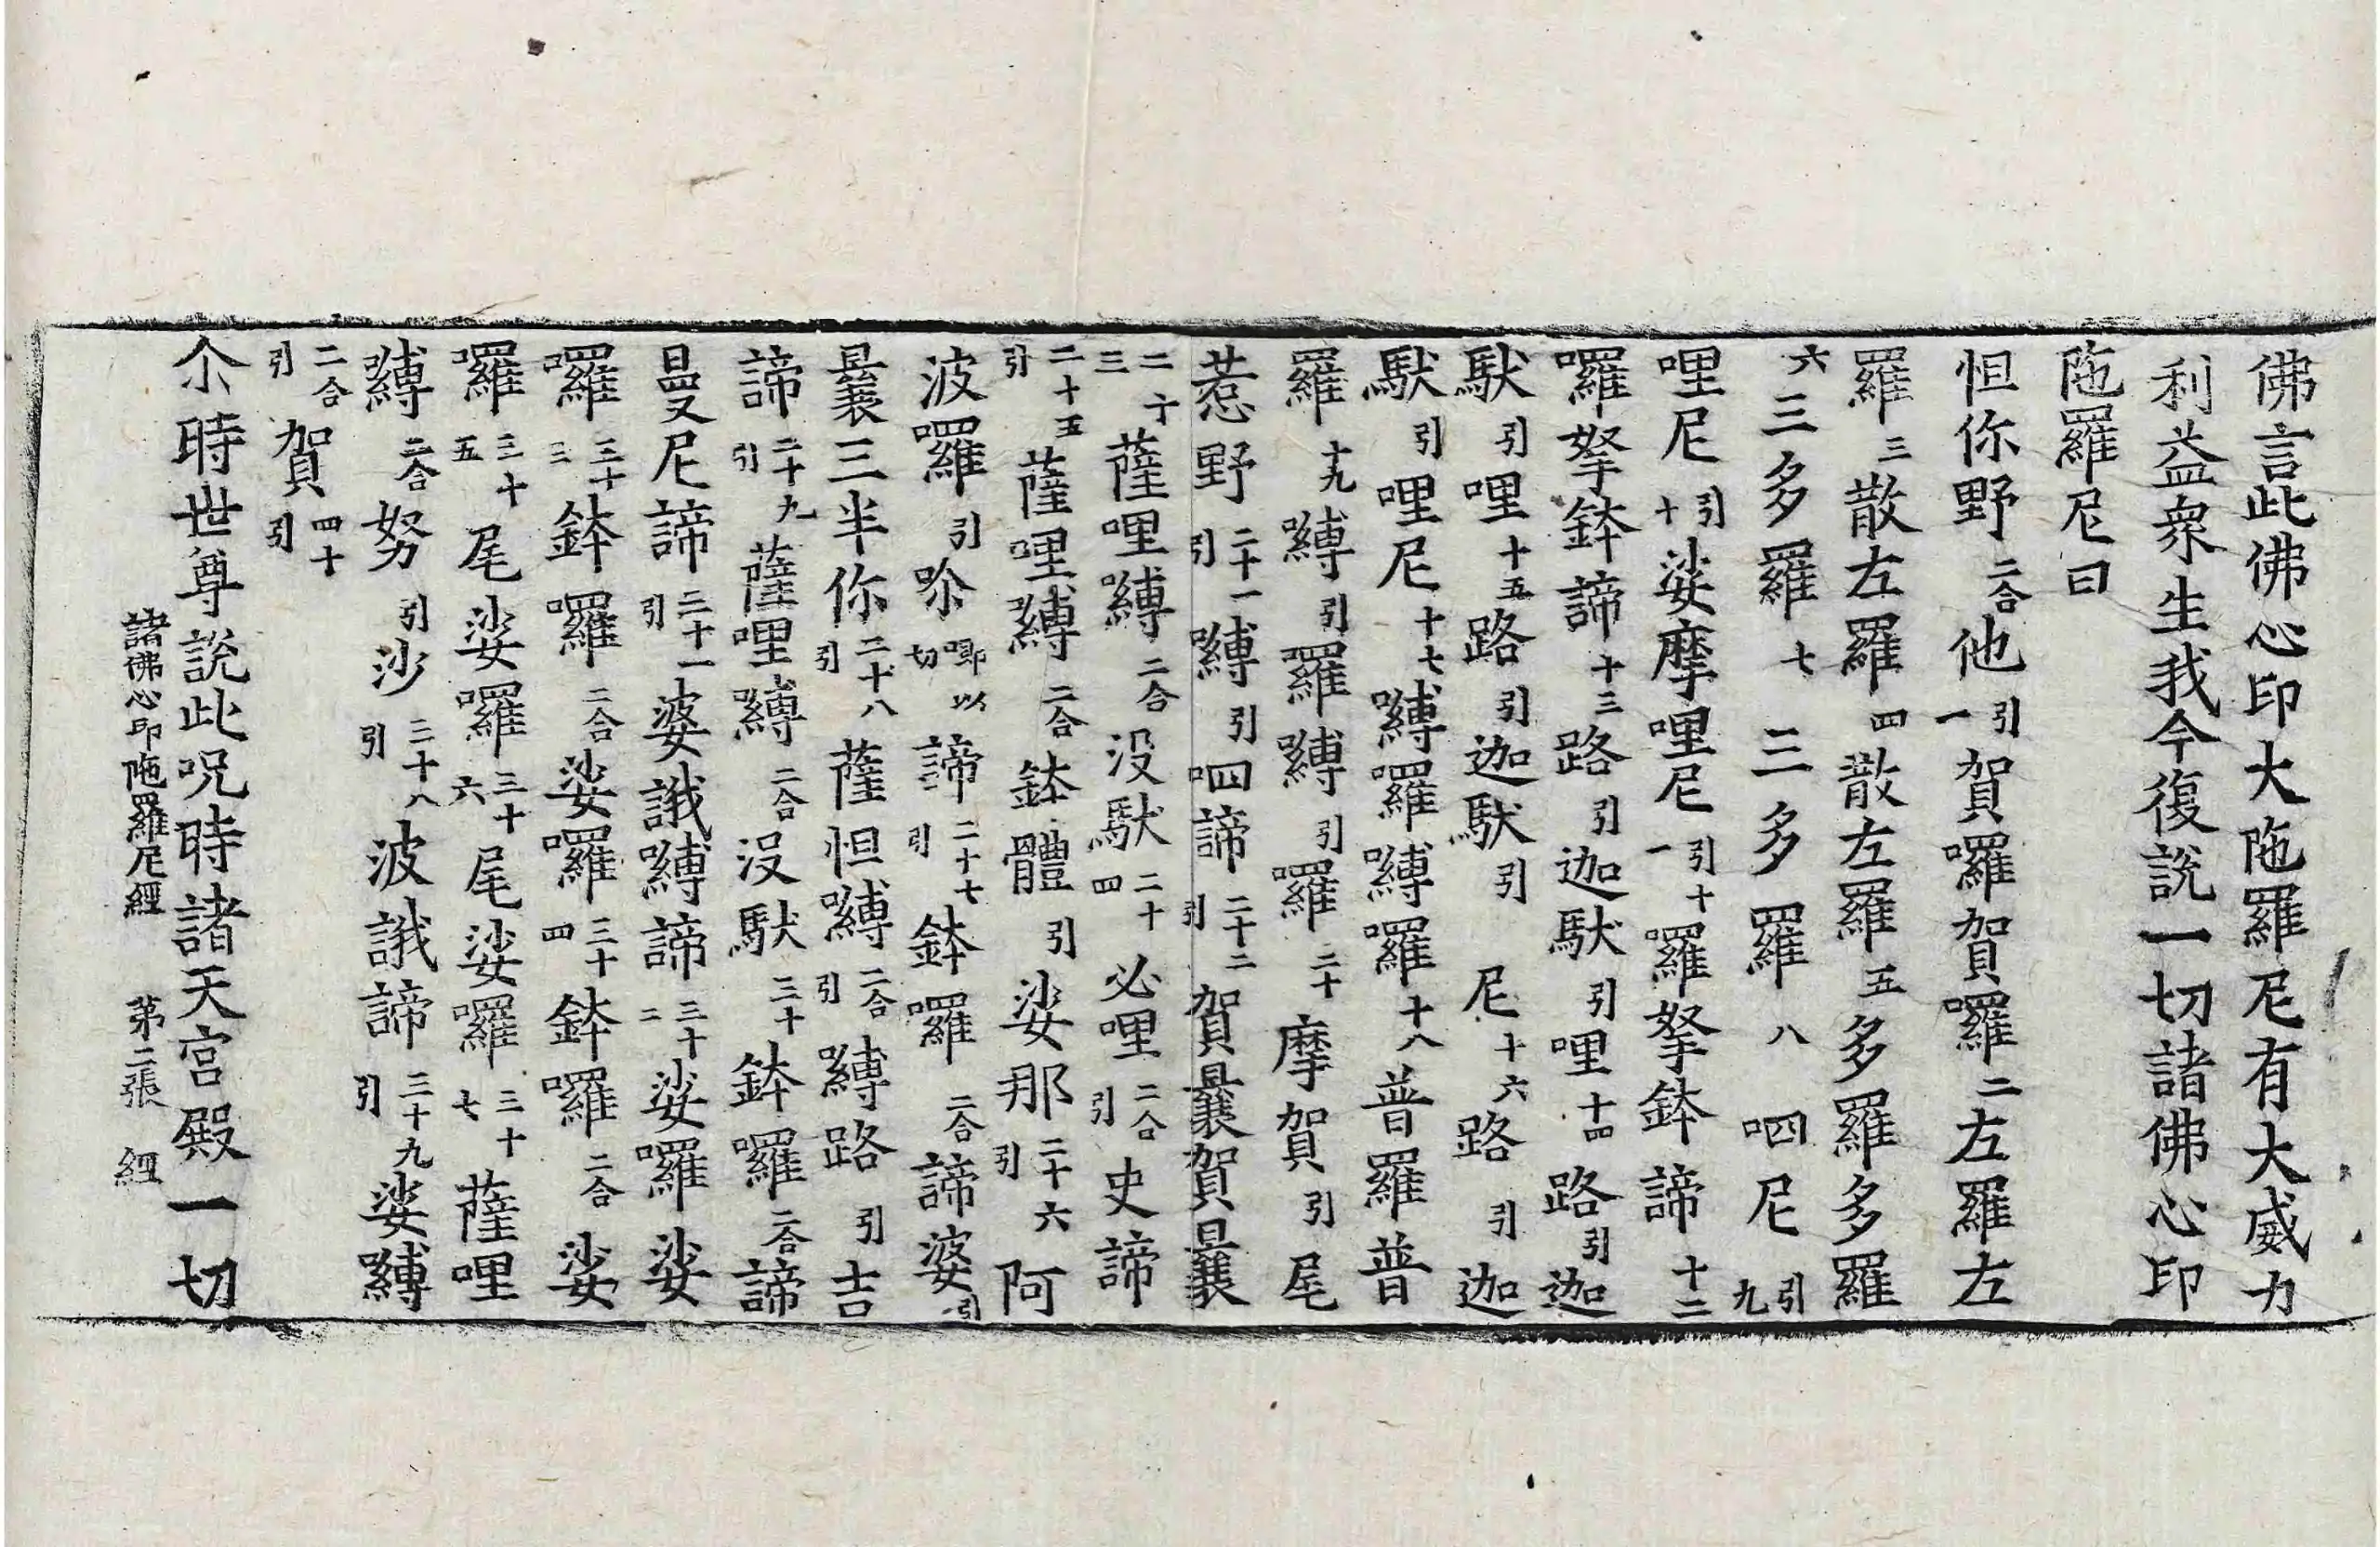 佛言此佛心印大陁羅尼有大威力
利益衆生我今復説一切諸佛心印
陁羅尼曰
怛你野二合他引一賀囉賀囉二左羅左
羅三散左羅四散左羅五多羅多羅
六三多羅七三多羅八呬尼引九
哩尼引十娑摩哩尼引十一羅拏鉢諦十二
囉拏鉢諦十三路引迦馱引哩十四路引迦
馱引哩十五路引迦馱引尼十六路引迦
馱引哩尼十七嚩羅嚩羅十八普羅普
羅十九嚩引羅嚩引羅二十摩賀引尾
惹野二十一引嚩引呬諦二十二引賀曩賀曩
二十三薩哩嚩二合没馱二十四必哩二合引史諦
二十五引薩哩嚩二合鉢體引娑那二十六引阿
波囉引吤嘢以切諦二十七引鉢囉二合諦婆引
曩三半你二十八引薩怛嚩二合引嚩路引吉
諦二十九引薩哩嚩二合没馱三十鉢囉二合諦
曼尼諦三十一引婆誐嚩諦三十二娑囉娑
囉三十三鉢囉二合娑囉三十四鉢囉二合娑
囉三十五尾娑囉三十六尾娑囉三十七薩哩
嚩二合努引沙三十八引波誐諦三十九引娑嚩
二合引賀四十引
尒時世尊説此呪時諸天宫殿一切
諸佛心印陁羅尼經　第二張　經